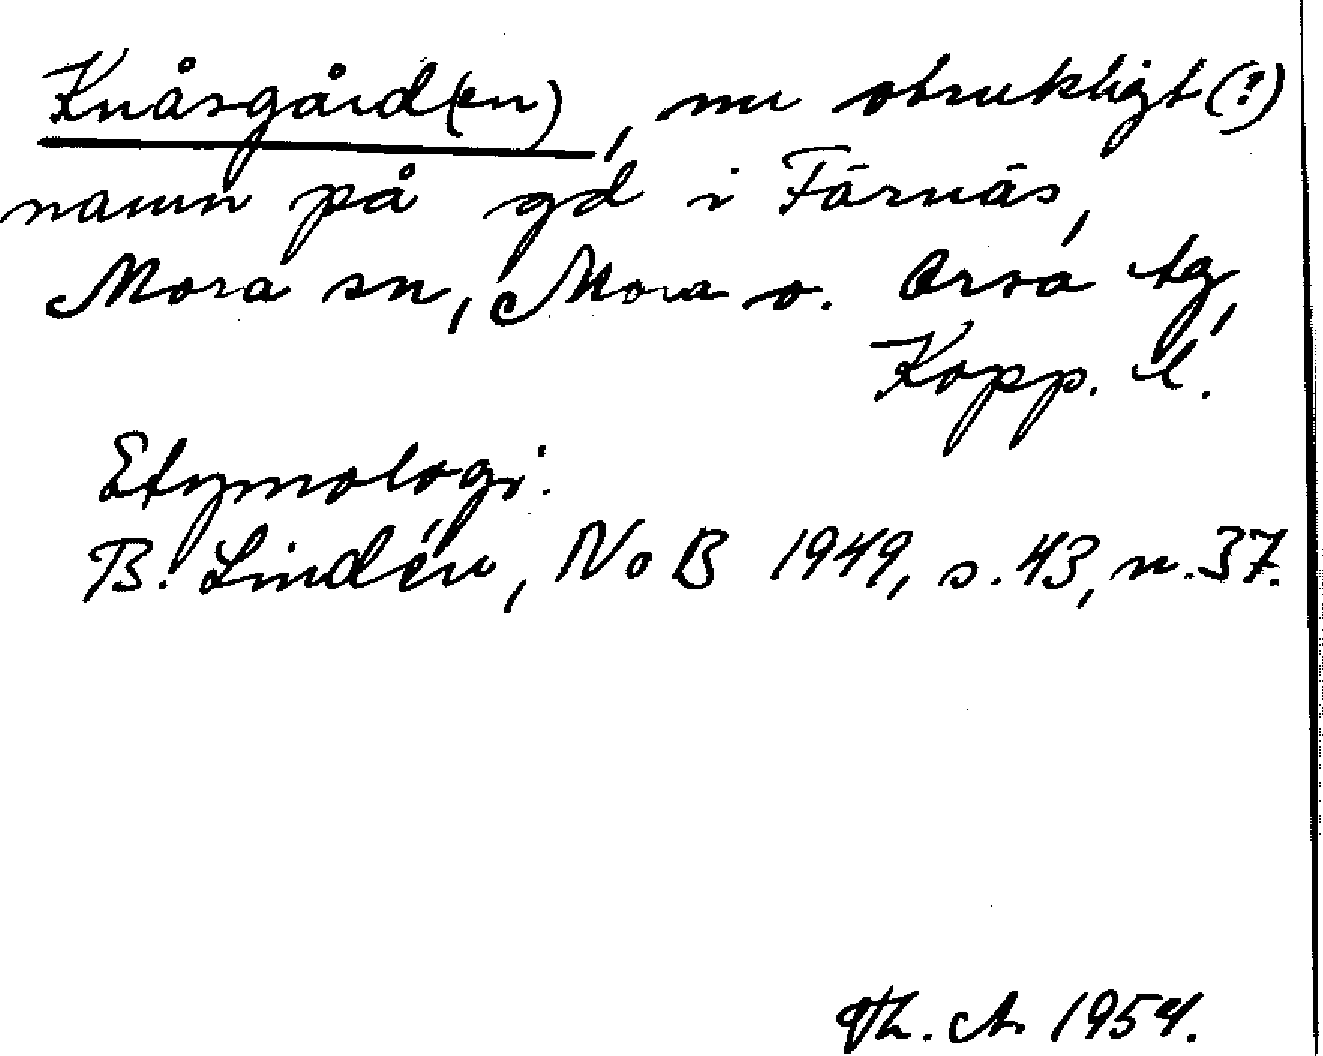 Knåsgård(en), nu obrukligt(?)
namn på gd i Färnäs,
Mora sn, Mora o. Orsa tg,
Kopp. l.
Etymologi:
B. Lindén, NoB 1949, s. 43, n. 37.
Th. A. 1954.